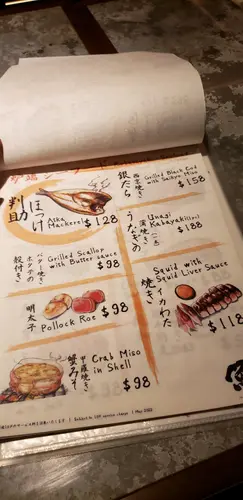 判助
ほっけ
Atka
Mackerel $128
銀だら
西京焼き
Grilled Black Cod
with Saikyo Miso
$158
うなぎの
蒲焼き
Unagi
Kabayaki
$188
殻付き
ホタテの
バター焼き
Grilled Scallop
with Butter sauce
$98
焼き
イカわた
Squid with
Squid Liver Sauce
$118
明太子
Pollock Roe
$98
蟹みそ
甲羅焼き
Crab Miso
in Shell
$98
Subject to 10% service charge | May 2022